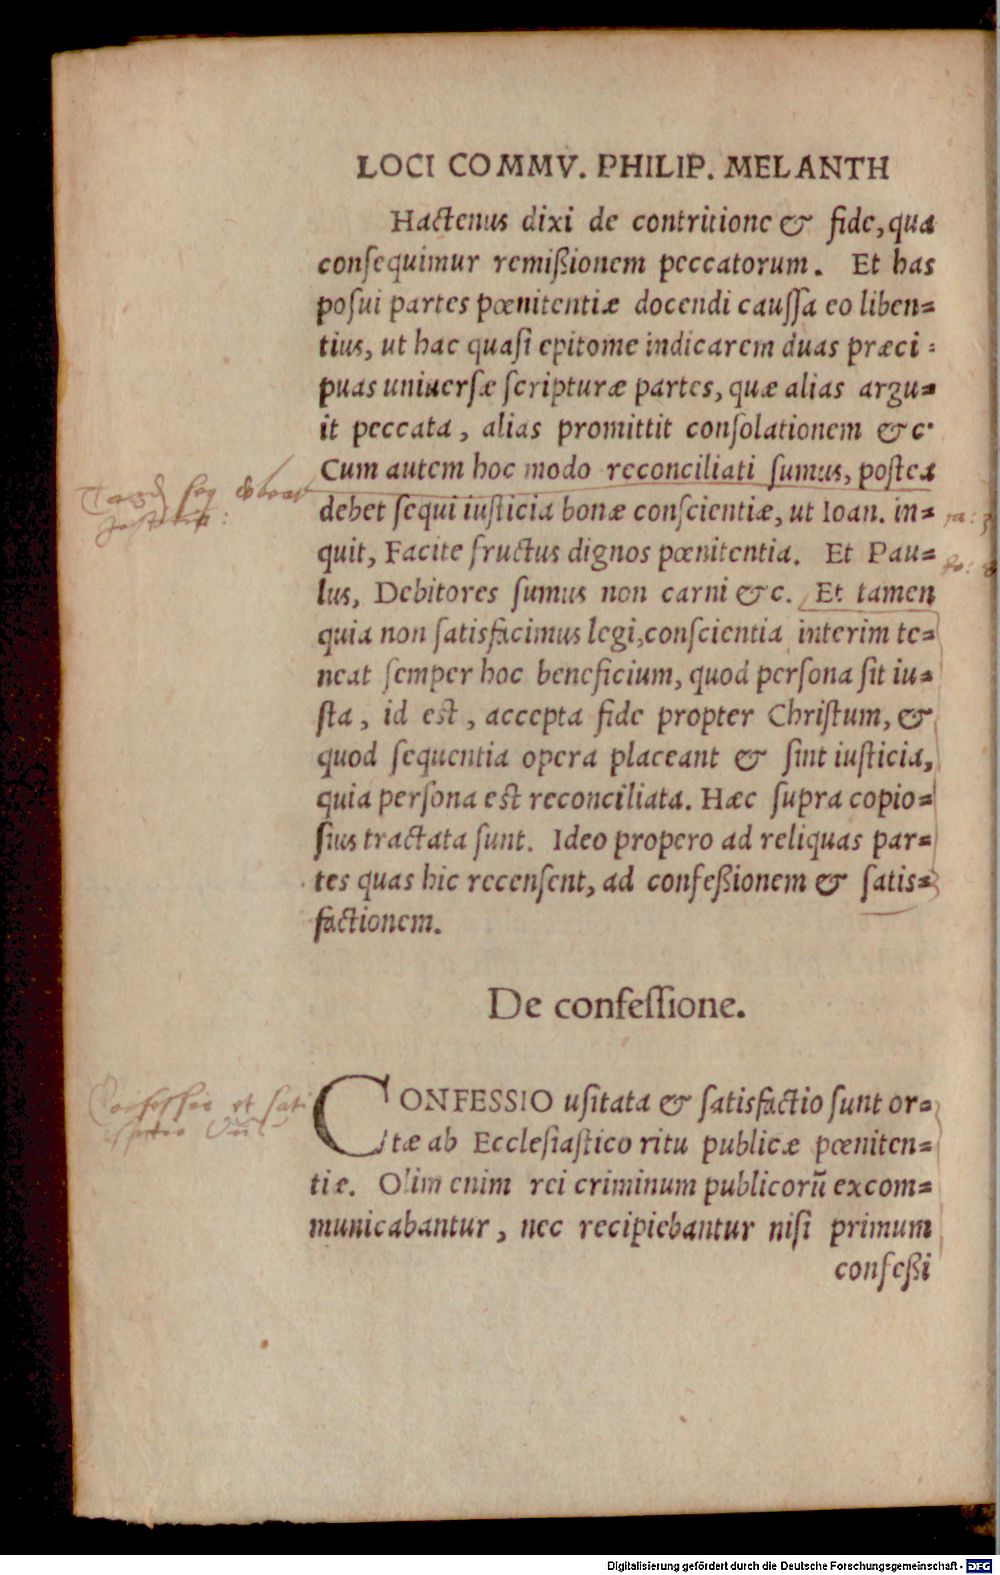 LOCI COMMV. PHILIP. MELANTH
Hactenus dixi de contritione & fide, qua
consequimur remißionem peccatorum. Et has
posui partes pœnitentiæ docendi caussa eo liben=
tius, ut hac quasi epitome indicarem duas præci=
puas uniuersæ scripturæ partes, quæ alias argu=
it peccata, alias promittit consolationem &c.
Cum autem hoc modo reconciliati sumus, postea
debet sequi iusticia bonæ conscientiæ, ut Ioan. in=
quit, Facite fructus dignos pœnitentia. Et Pau=
lus, Debitores sumus non carni &c. Et tamen
quia non satisfacimus legi, conscientia interim te=
neat semper hoc beneficium, quod persona sit iu=
sta, id est, accepta fide propter Christum, &
quod sequentia opera placeant & sint iusticia,
quia persona est reconciliata. Hæc supra copio=
sius tractata sunt. Ideo propero ad reliquas par=
tes quas hic recensent, ad confeßionem & satis=
factionem.
De confessione.
CONFESSIO usitata & satisfactio sunt or=
tæ ab Ecclesiastico ritu publicæ pœniten=
tiæ. Olim enim rei criminum publicorũ excom=
municabantur, nec recipiebantur nisi primum
confeßi
Confessio et sati
Digitalisierung gefördert durch die Deutsche Forschungsgemeinschaft - DFG